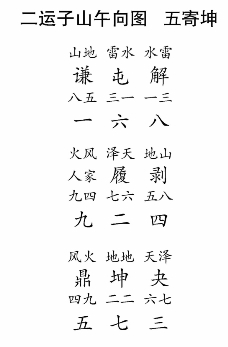 二运子山午向图 五寄坤
山地 雷水 水雷
谦 屯 解
八五 三一 一三
一 六 八
火风 泽天 地山
人家 履 剥
九四 七六 五八
九 二 四
风火 地地 天泽
鼎 坤 夬
四九 二二 六七
五 七 三